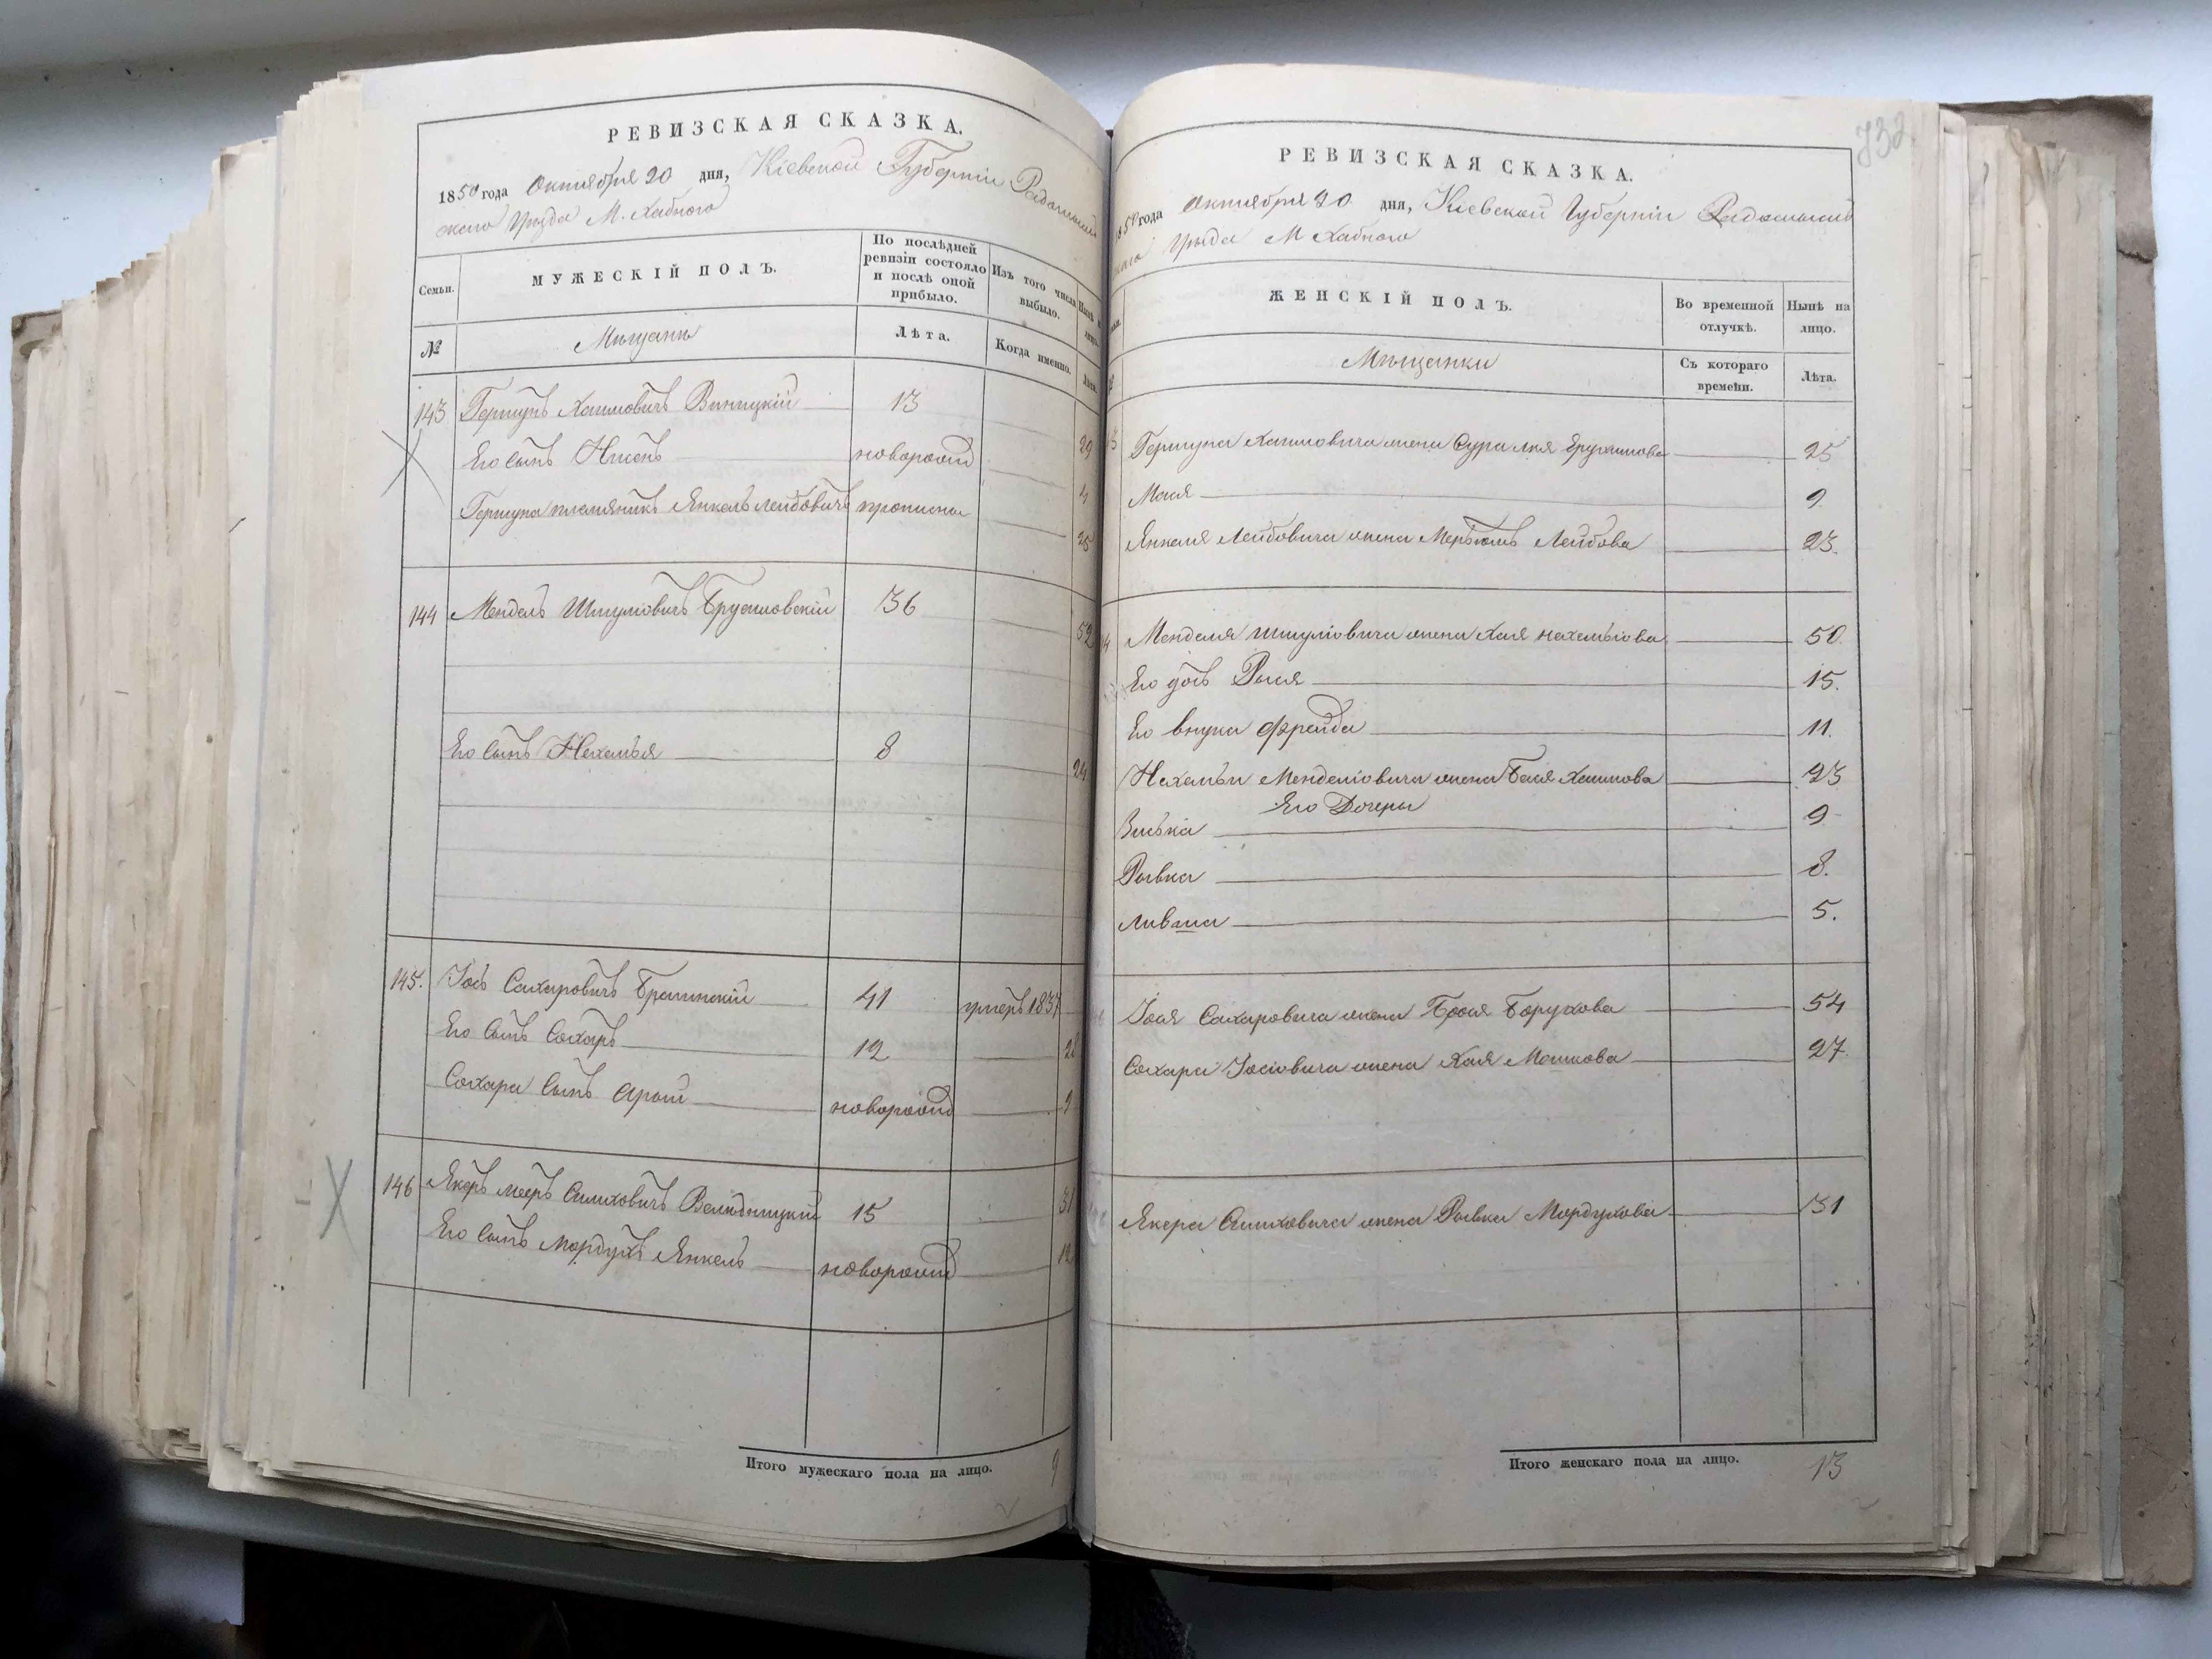 РЕВИЗСКАЯ СКАЗКА.
1850 года Октября 20 дня, Кіевской Губерніи Радомысль
скаго Уезда М. Хабного
Семьи.
МУЖЕСКІЙ ПОЛЪ.
По послѣдней ревизіи состояло и послѣ оной прибыло.
Изъ того числа выбыло.
№
Мещанъ
Лѣта.
Когда именно.
Лѣта.
143 Гершунъ Хаимовичъ Виницкій 13 29
Его сынъ Нисенъ новорожд 4
Гершуна племяникъ Янкель Лейбовичъ прописны 25
144 Мендель Шмулiовичъ Брусиловскій 36 52
Его сынъ Нехемья 8 24
145. Іось Сахаровичъ Брагинскій 41 умеръ 1837
Его Сынъ Сохаръ 12 28
Сохара Сынъ Арон новорожд 9
146 Якеръ Мееръ Симховичъ Веледницкій 15 31
Его Сынъ Мордухъ Янкель новорожд 12
Итого мужескаго пола на лицо. 9
732.
РЕВИЗСКАЯ СКАЗКА.
1850 года Октября 20 дня, Кіевской Губерніи Радомысль
скаго Уезда М Хабного
ЖЕНСКІЙ ПОЛЪ.
Во временной отлучкѣ.
Нынѣ на лицо.
Мещанки
Съ котораго времени.
Лѣта.
Гершуна Хаимовича жена Сура Лея Ерухимова 25
Мася 9
Янкеля Лейбовича жена Лейбова 23.
Менделя Шмулiовича жена Хая Нехемьiова 50.
Его дочь Рыся 15.
Его внука Фрейда 11.
Нехемьи Менделiовича жена Бася Хаимова 23
Его Дочеры
Виська 9
Рывка 8.
Ливша 5.
Іося Сахаровича жена Брося Борухова 54
Сохара Іосіовича жена Хая Мошкова 27.
Якера Симховича жена Рывка Мордухова 31
Итого женскаго пола на лицо. 13